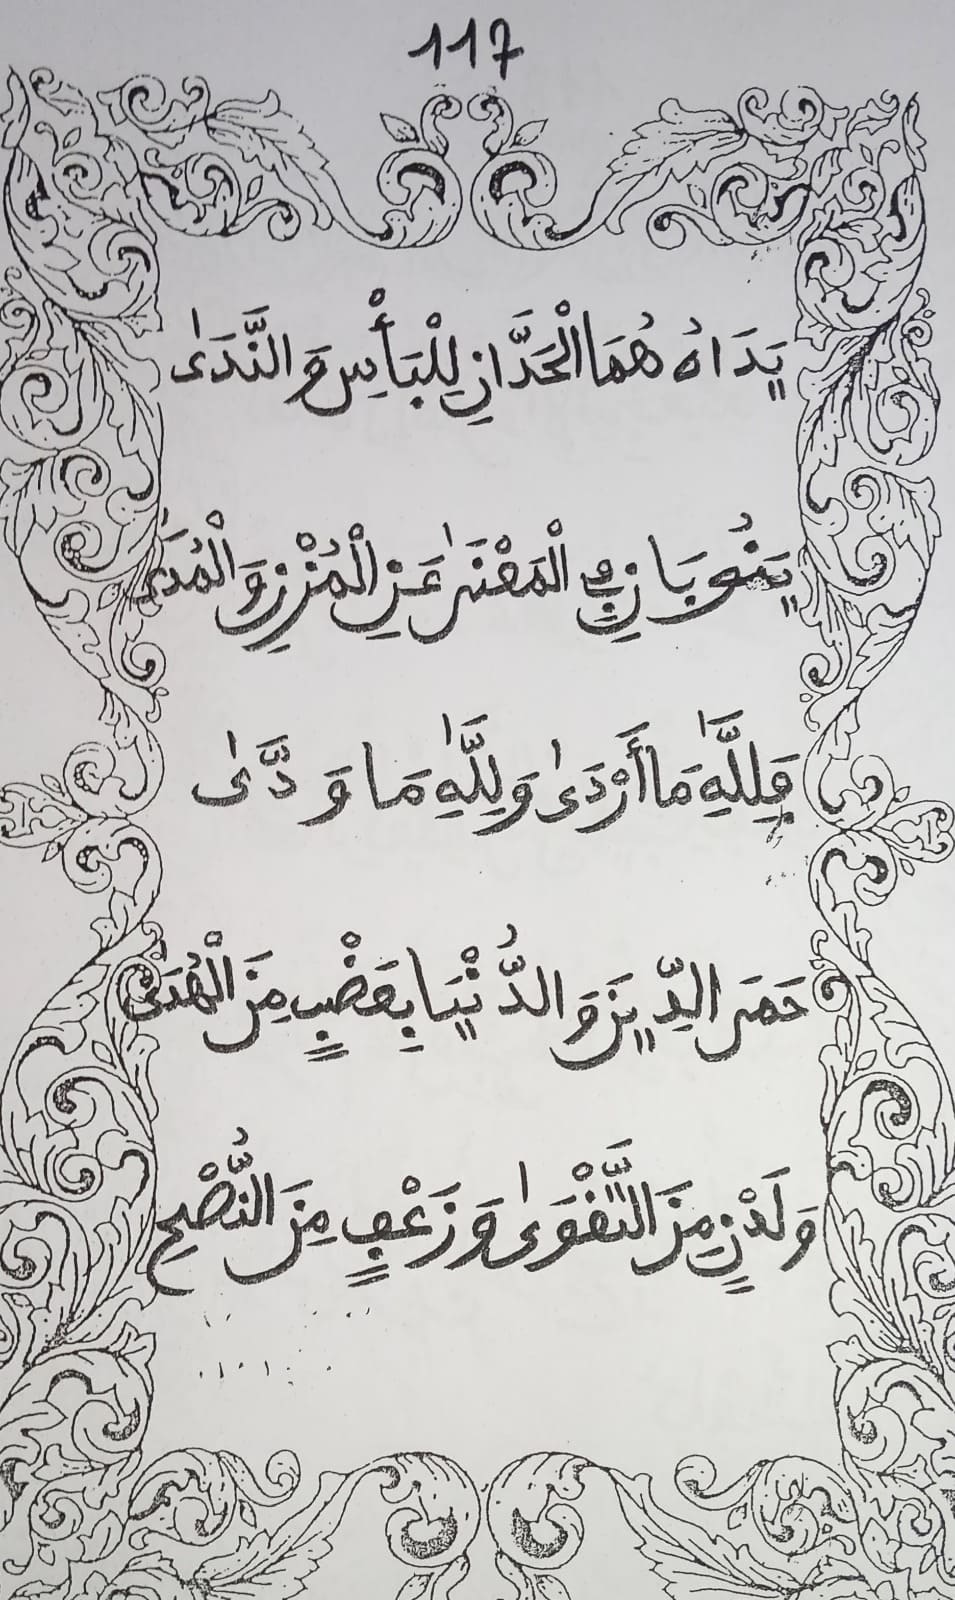 117
يَدَاهُ هُمَا الْحَدَّانِ لِلْبَأْسِ وَالنَّدَىٰ
يَنُوبَانِ فِي الْمَعْنَىٰ عَنِ الْمُزْنِ وَالْمُدَىٰ
فَلِلَّهِ مَا أَرْدَىٰ وَلِلَّهِ مَا وَدَّىٰ
حَمَى الدِّينَ وَالدُّنْيَا بِعَضْبٍ مِنَ الْهُدَىٰ
وَلَدْنٍ مِنَ التَّقْوَىٰ وَزَغْفٍ مِنَ النُّصْحِ